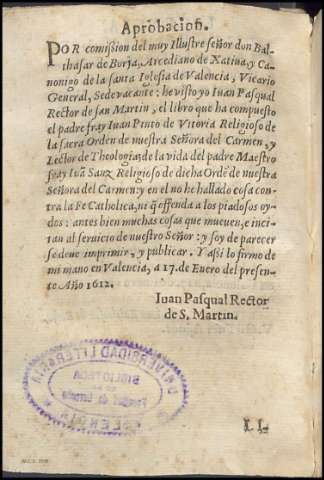 Aprobacion.
POR comission del muy Illustre señor don Bal-
thasar de Borja, Arcediano de Xatiua, y Ca-
nonigo de la santa Iglesia de Valencia, Vicario
General, Sedevacante: he visto yo Iuan Pasqual
Rector de san Martin, el libro que ha compuesto
el padre fray Iuan Pinto de Vitoria Religioso de
la sacra Orden de nuestra Señora del Carmen, y
Lector de Theologia, de la vida del padre Maestro
fray Iuā Sanz Religioso de dicha Ordē de nuestra
Señora del Carmen: y en el no he hallado cosa con-
tra la Fe Catholica, ni q̃ offenda a los piadosos oy-
dos: antes bien muchas cosas que mueuen, e inci-
tan al seruicio de nuestro Señor: y soy de parecer
se deue imprimir, y publicar. Y assi lo firmo de
mi mano en Valencia, a 17. de Enero del presen-
te Año 1612.
Iuan Pasqual Rector
de S. Martin.
UNIVERSIDAD LITERARIA
BIBLIOTECA
VALENCIA